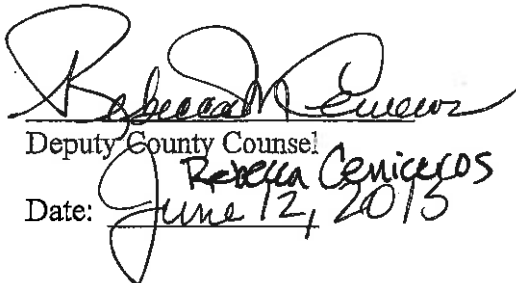 Rebecca M Ceniceros
Deputy County Counsel
Rebecca Ceniceros
Date: June 12, 2015